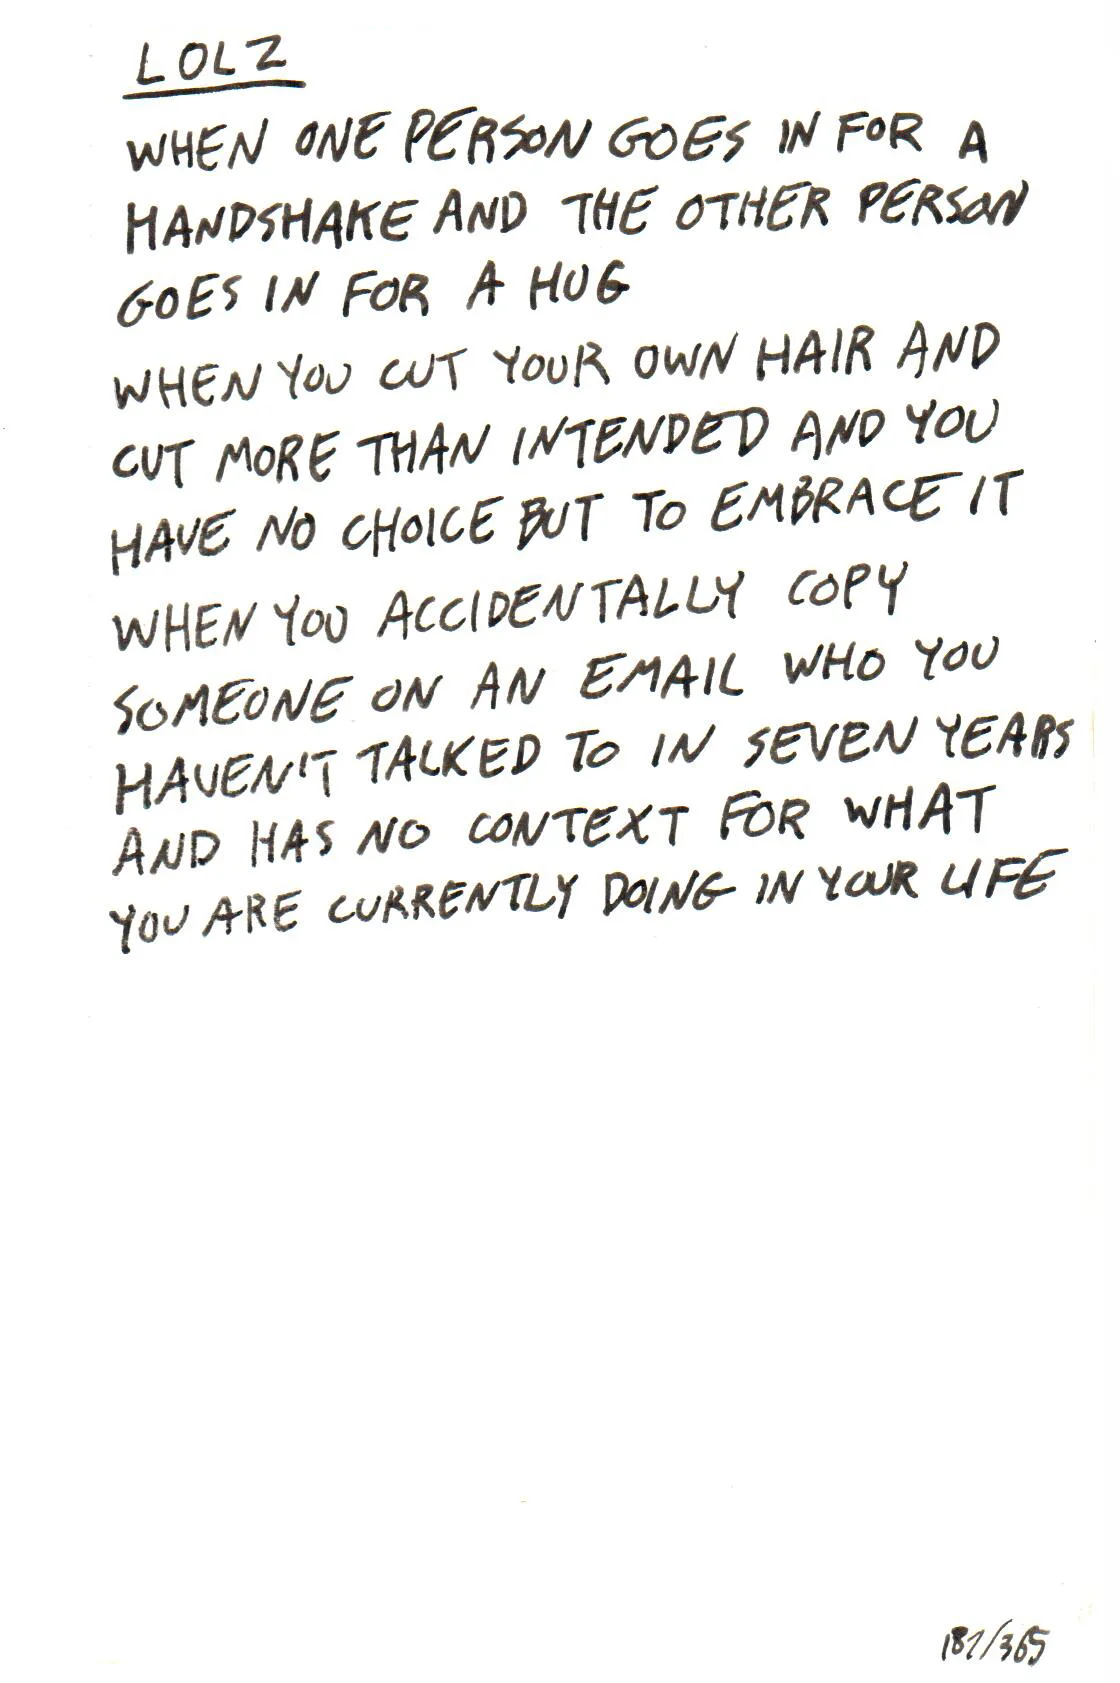 LOLZ
WHEN ONE PERSON GOES IN FOR A
HANDSHAKE AND THE OTHER PERSON
GOES IN FOR A HUG
WHEN YOU CUT YOUR OWN HAIR AND
CUT MORE THAN INTENDED AND YOU
HAVE NO CHOICE BUT TO EMBRACE IT
WHEN YOU ACCIDENTALLY COPY
SOMEONE ON AN EMAIL WHO YOU
HAVEN'T TALKED TO IN SEVEN YEARS
AND HAS NO CONTEXT FOR WHAT
YOU ARE CURRENTLY DOING IN YOUR LIFE
187/365